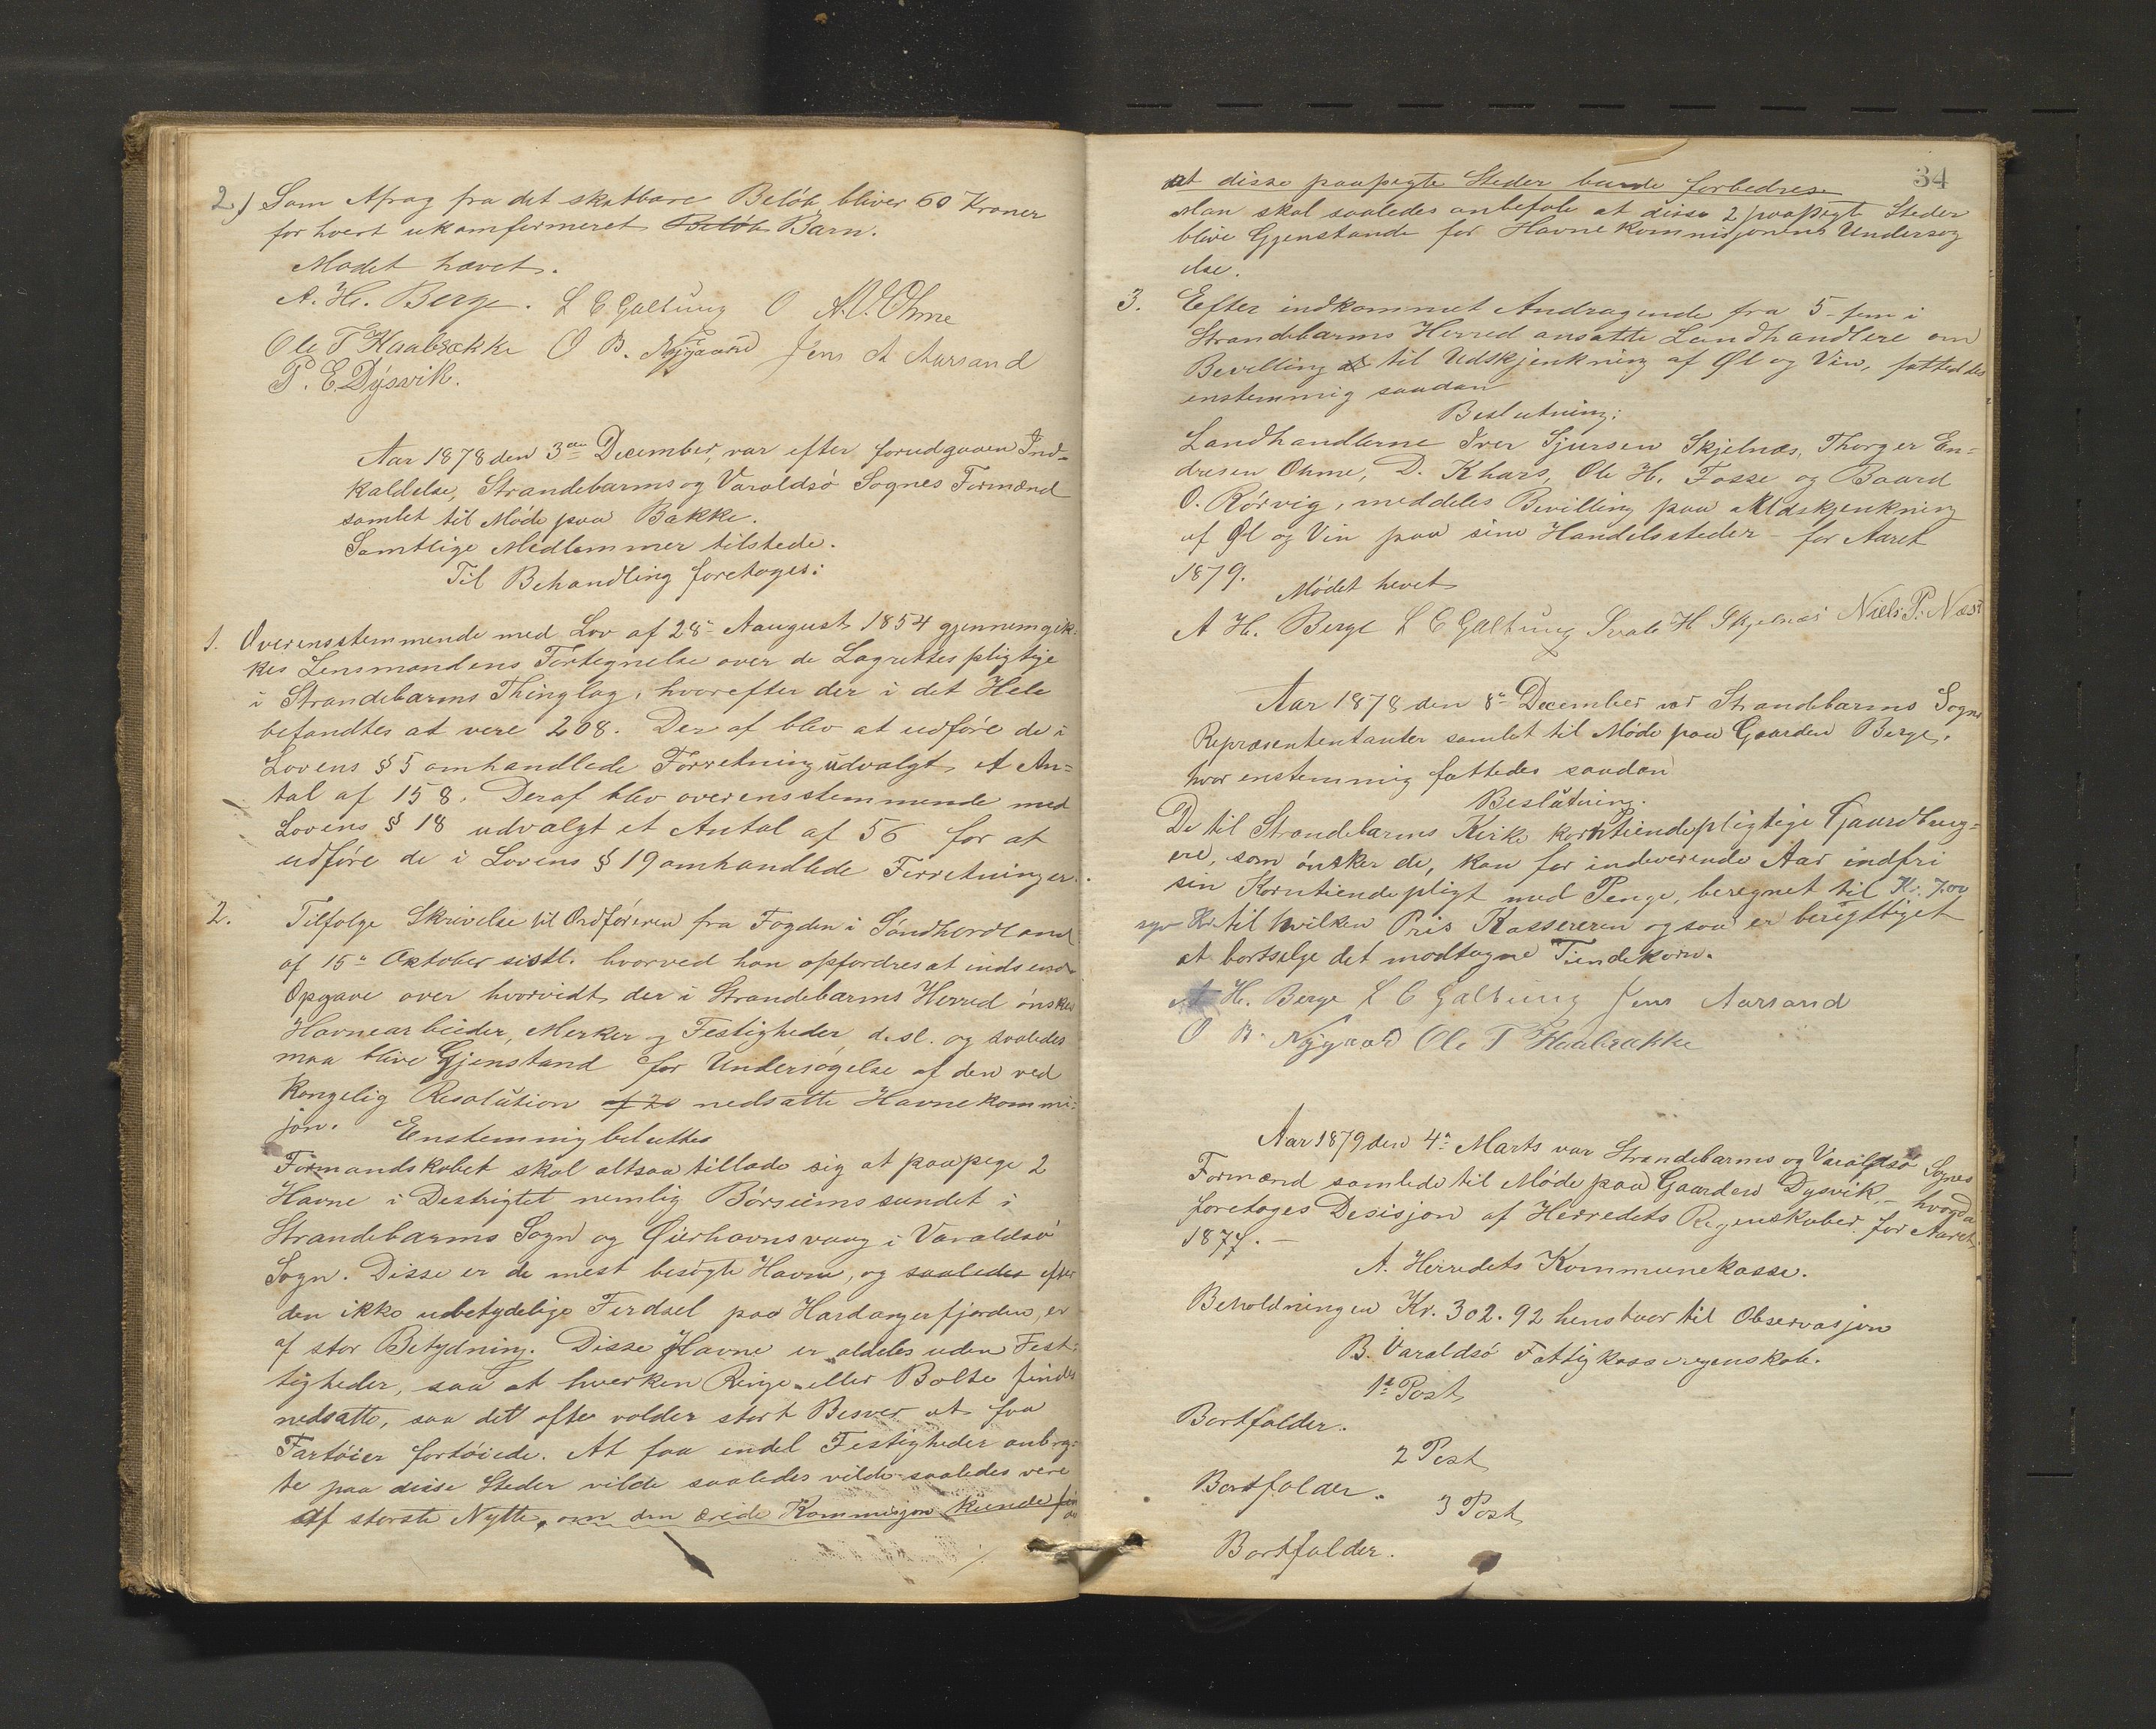 2) Som Afrag fra det skatbare Beløb bliver 60 Kroner
for hvert ukomfermeret Beløb Barn.
Mødet hævet.
A. H. Berge. L E Galtung O A. O. Ohme
Ole T Haabrække O B. Nygaard Jens A Aarsand
P. E. Dysvik.
Aar 1878 den 3die December, var efter forudgaaen Ind-
kaldelse, Strandebarms og Varaldsø Sognes Formænd
samlet til Møde paa Bakke.
Samtlige Medlemmer tilstede.
Til Behandling foretoges:
1. Overensstemmende med Lov af 28de Aaugust 1854 gjennemgik-
kes Lensmandens Fortegnelse over de Lagrettespligtige
i Strandebarms Thinglag, hvorefter der i det Hele
befandtes at vere 208. Der af blev at udføre de i
Lovens § 5 omhandlede Forretning udvalgt et An=
tal af 158. Deraf blev overensstemmende med
Lovens § 18 udvalgt et Antal af 56 for at
udføre de i Lovens § 19 omhandlede Ferretninger.
2. Tilfølge Skrivelse til Ordføreren fra Fogden i Søndhordland
af 15de Oktober sistl. hvorved han opfordres at indsende
Opgave over hvorvidt der i Strandebarms Herred ønskes
Havnearbeider, Merker og Festigheder, desl. og saaledes
maa blive Gjenstand for Undersøgelse af den ved
kongelig Resolution af 20 nedsatte Havnekommi-
jon. Eenstemmig beluttes
Formandskabet skal altsaa tillade sig at paapege 2
Havne i Destrigtet nemlig Børseimssundet i
Strandebarms Sogn og Øierhavnsvaag i Varaldsø
Sogn. Disse er de mest besøgte Havne, og saaledes efter
den ikke ubetydelige Ferdsel paa Hardangerfjorden, er
af stor Betydning. Disse Havne er aldeles uden Fest-
tigheder, saa at hverken Ringe eller Bolte findes
nedsatte, saa det ofte volder stort Besver at faa
Fartøier fortøiede. At faa endel Festigheder anbrag-
te paa disse Steder vilde saaledes vilde saaledes vere
af største Nytte, om den ærede Kommisjon kunde finde
34
at disse paapegte Steder burde forbedres
Man skal saaledes anbefale at disse 2 paapegte Steder
blive Gjenstande for Havnekommisjonens Undersøg
else.
3. Efter indkommet Andragende fra 5 - fem i
Strandebarms Herred ansatte Landhandlere om
Bevilling til Udskjenkning af Øl og Vin, fattedes
enstemmig saadan
Beslutning:
Landhandlerne Iver Sjursen Skjelnæs, Thorger En=
dresen Ohme, D. Khars, Ole H. Fosse og Baard
O. Rørvig, meddeles Bevilling paa Udskjenkning
af Øl og Vin paa sine Handelssteder - for Aaret
1879.
Mødet hevet
A H. Berge L E Galtung H Skjelnæs Niels P. Næss
Aar 1878 den 8de December var Strandebarms Sogns
Repræsententanter samlet til Møde paa Gaarden Berge,
hvor enstemmig fattedes saadan
Beslutning.
De til Strandebarms Kirke korntiendepligtige Gaardbrug=
ere, som ønsker de, kan for indeverende Aar indfri
sin Korntiendepligt med Penge, beregnet til Kr. 7.00
syv Kr. til hvilken Pris Kassereren ogsaa er berigttiget
at bortselge det modtagne Tiendekorn.
A H. Berge L E Galtung Jens Aarsand
O B. Nygaard Ole T Haabrække
Aar 1879 den 4de Marts var Strandebarms og Varaldsø Sognes
Formænd samlede til Møde paa Gaarden Dysvik, - hvorda
foretoges Desisjon af Herredets Regenskaber for Aaret
1877. -
A. Herredets Kommunekasse.
Beholdningen Kr. 302.92 henstaar til Observasjon
B. Varaldsø Fattigkasseregenskab.
1ste Post
Bortfalder.
2 Post
Bortfalder.
3 Post
Bortfalder.